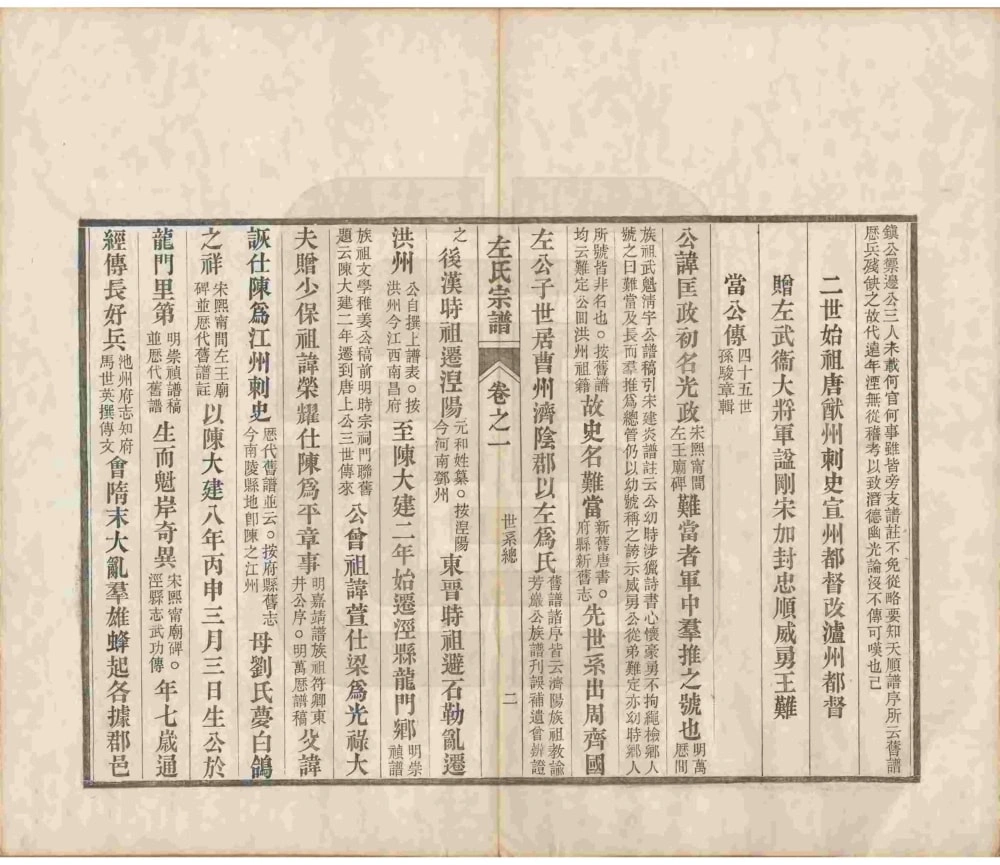 鎭公禦邊公三人未載何官何事雖皆旁支譜註不免從略要知天順譜序所云舊譜
歷兵殘缺之故代遠年湮無從稽考以致潛德幽光論沒不傳可嘆也已
二世始祖唐猷州刺史宣州都督改瀘州都督
贈左武衞大將軍諡剛宋加封忠順威勇王難
當公傳
四十五世
孫駿章輯
公諱匡政初名光政
宋熙甯間
左王廟碑
難當者軍中羣推之號也
明萬
歷間
族祖武魁淸字公譜稿引宋建炎譜註云公幼時涉獵詩書心懷豪勇不拘繩檢鄉人
號之曰難當及長而羣推爲總管仍以幼號稱之誇示威勇公從弟難定亦幼時鄉人
所號皆非名也。按舊譜
均云難定公回洪州祖籍
故史名難當
新舊唐書。
府縣新舊志
先世系出周齊國
左公子世居曹州濟陰郡以左爲氏
舊譜諸序皆云濟陽族祖教諭
芳嚴公族譜刊誤補遺曾辨證
左氏宗譜
卷之一
世系總
二
之
後漢時祖遷湼陽
元和姓纂。按湼陽
今河南鄧州
東晉時祖避石勒亂遷
洪州
公自撰上譜表。按
洪州今江西南昌府
至陳大建二年始遷涇縣龍門鄉
明崇
禎譜
族祖文學稚姜公稿前明時宗祠門聯舊
題云陳大建二年遷到唐上公三世傳來
公曾祖諱萱仕梁爲光祿大
夫贈少保祖諱榮耀仕陳爲平章事
明嘉靖譜族祖符卿東
井公序。明萬歷譜稿
父諱
詼仕陳爲江州刺史
歷代舊譜並云。按府縣舊志
今南陵縣地卽陳之江州
母劉氏夢白鴿
之祥
宋熙甯間左王廟
碑並歷代舊譜註
以陳大建八年丙申三月三日生公於
龍門里第
明崇禎譜稿
並歷代舊譜
生而魁岸奇異
宋熙甯廟碑。
涇縣志武功傳
年七歲通
經傳長好兵
池州府志知府
馬世英撰傳文
會隋末大亂羣雄蜂起各據郡邑